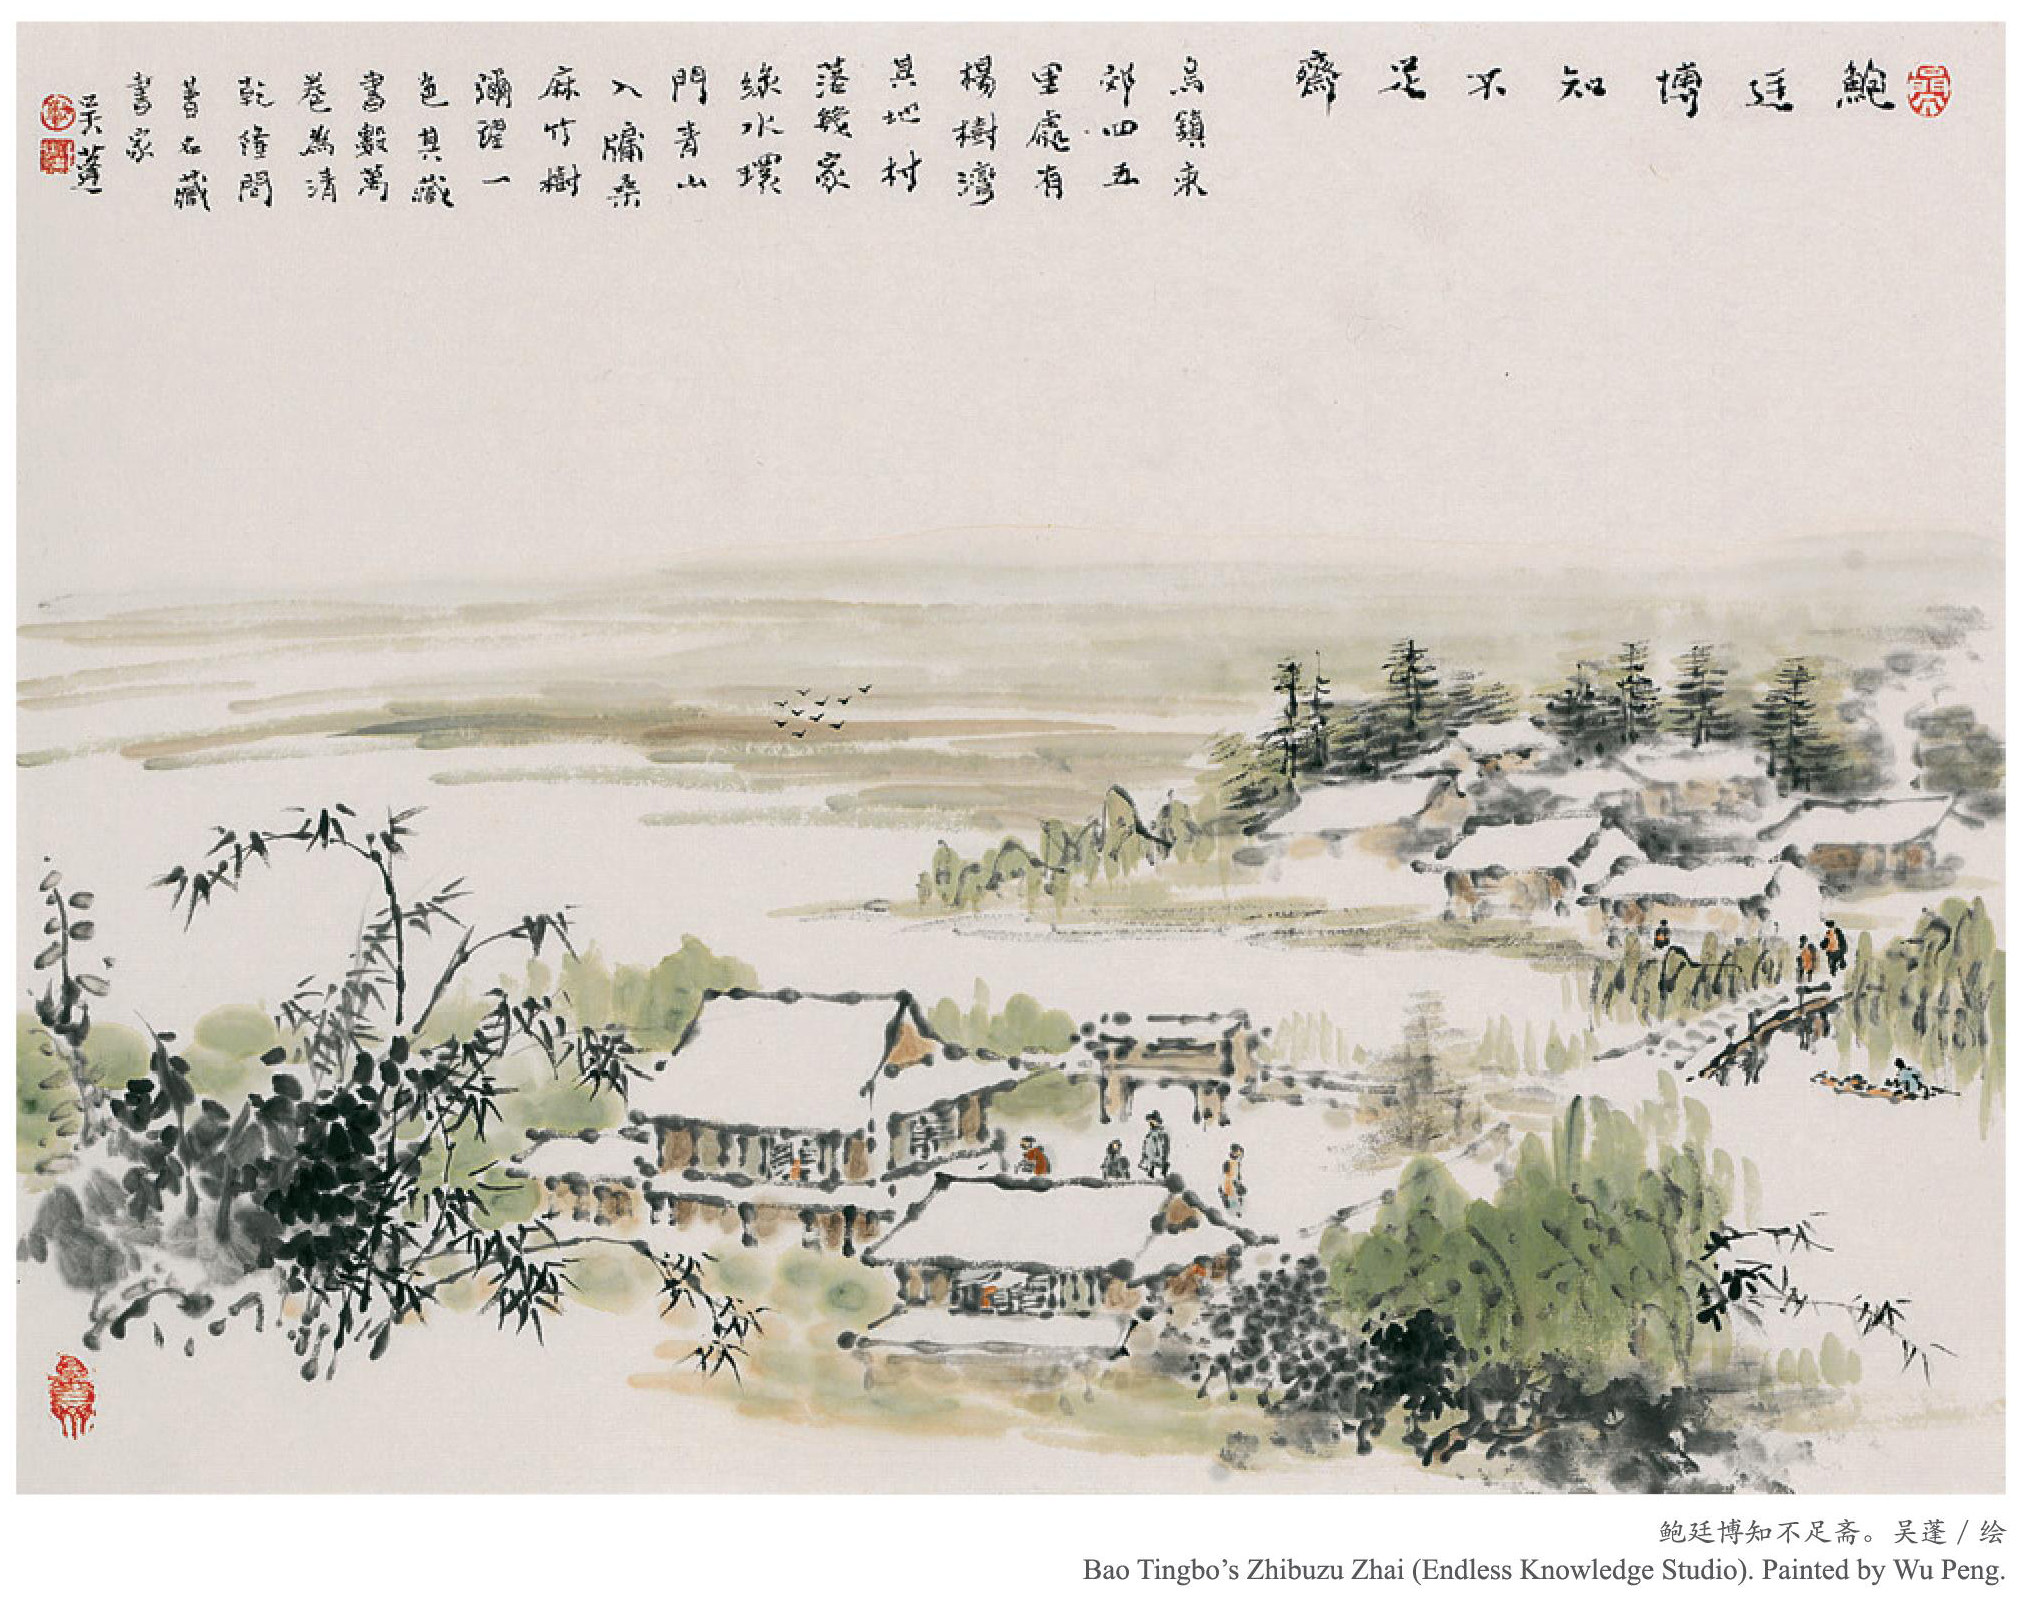 鮑廷博知不足齋
烏鎮東
郊四五
里處有
楊樹灣
其地村
落幾家
綠水環
門青山
入牖桑
麻竹樹
彌望一
色其藏
書數萬
卷為清
乾隆間
著名藏
書家
吳蓬
鲍廷博知不足斋。吴蓬 / 绘
Bao Tingbo’s Zhibuzu Zhai (Endless Knowledge Studio). Painted by Wu Peng.